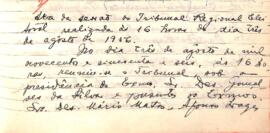 Ata da sessão do Tribunal Regional Elei
toral realizada às 16 horas do dia três
de agosto de 1956.
Ao dia três de agosto de mil
novecentos e cincoenta e seis, às 16 ho
ras, reuniu-se o Tribunal, sob a
presidência do Exmo. Sr. Des. Gonçal
ves da Silva e presentes os Exmos.
Srs. Des. Mário Matos, Afonso Lages